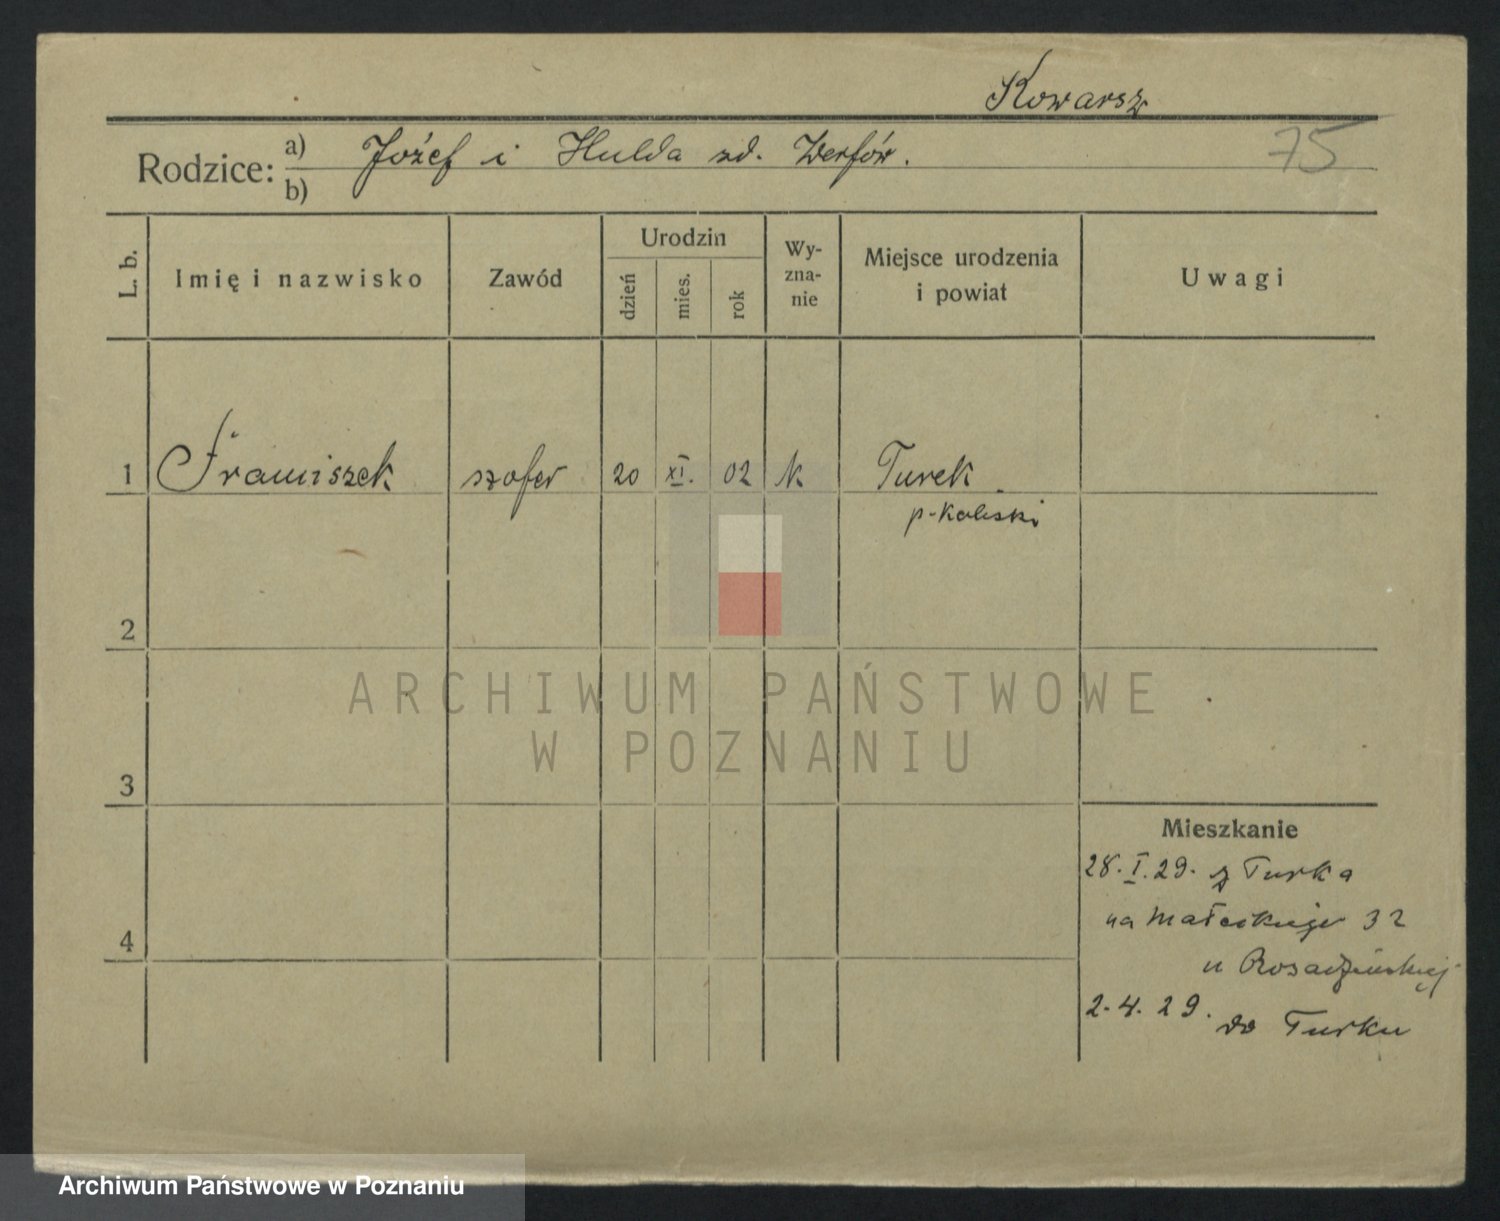 Kowarsz
75
Rodzice: a) Józef i Hulda zd. Werfów.
b)
L. b. Imię i nazwisko Zawód Urodzin dzień mies. rok Wy-zna-nie Miejsce urodzenia i powiat Uwagi
1 Franciszek szofer 20 XI. 02 k Turek
p-kaliski
2
ARCHIWUM PAŃSTWOWE
W POZNANIU
3
Mieszkanie
28. I. 29. z Turka
na Małeckiego 32
u
4
2. 4. 29. do Turku
Archiwum Państwowe w Poznaniu